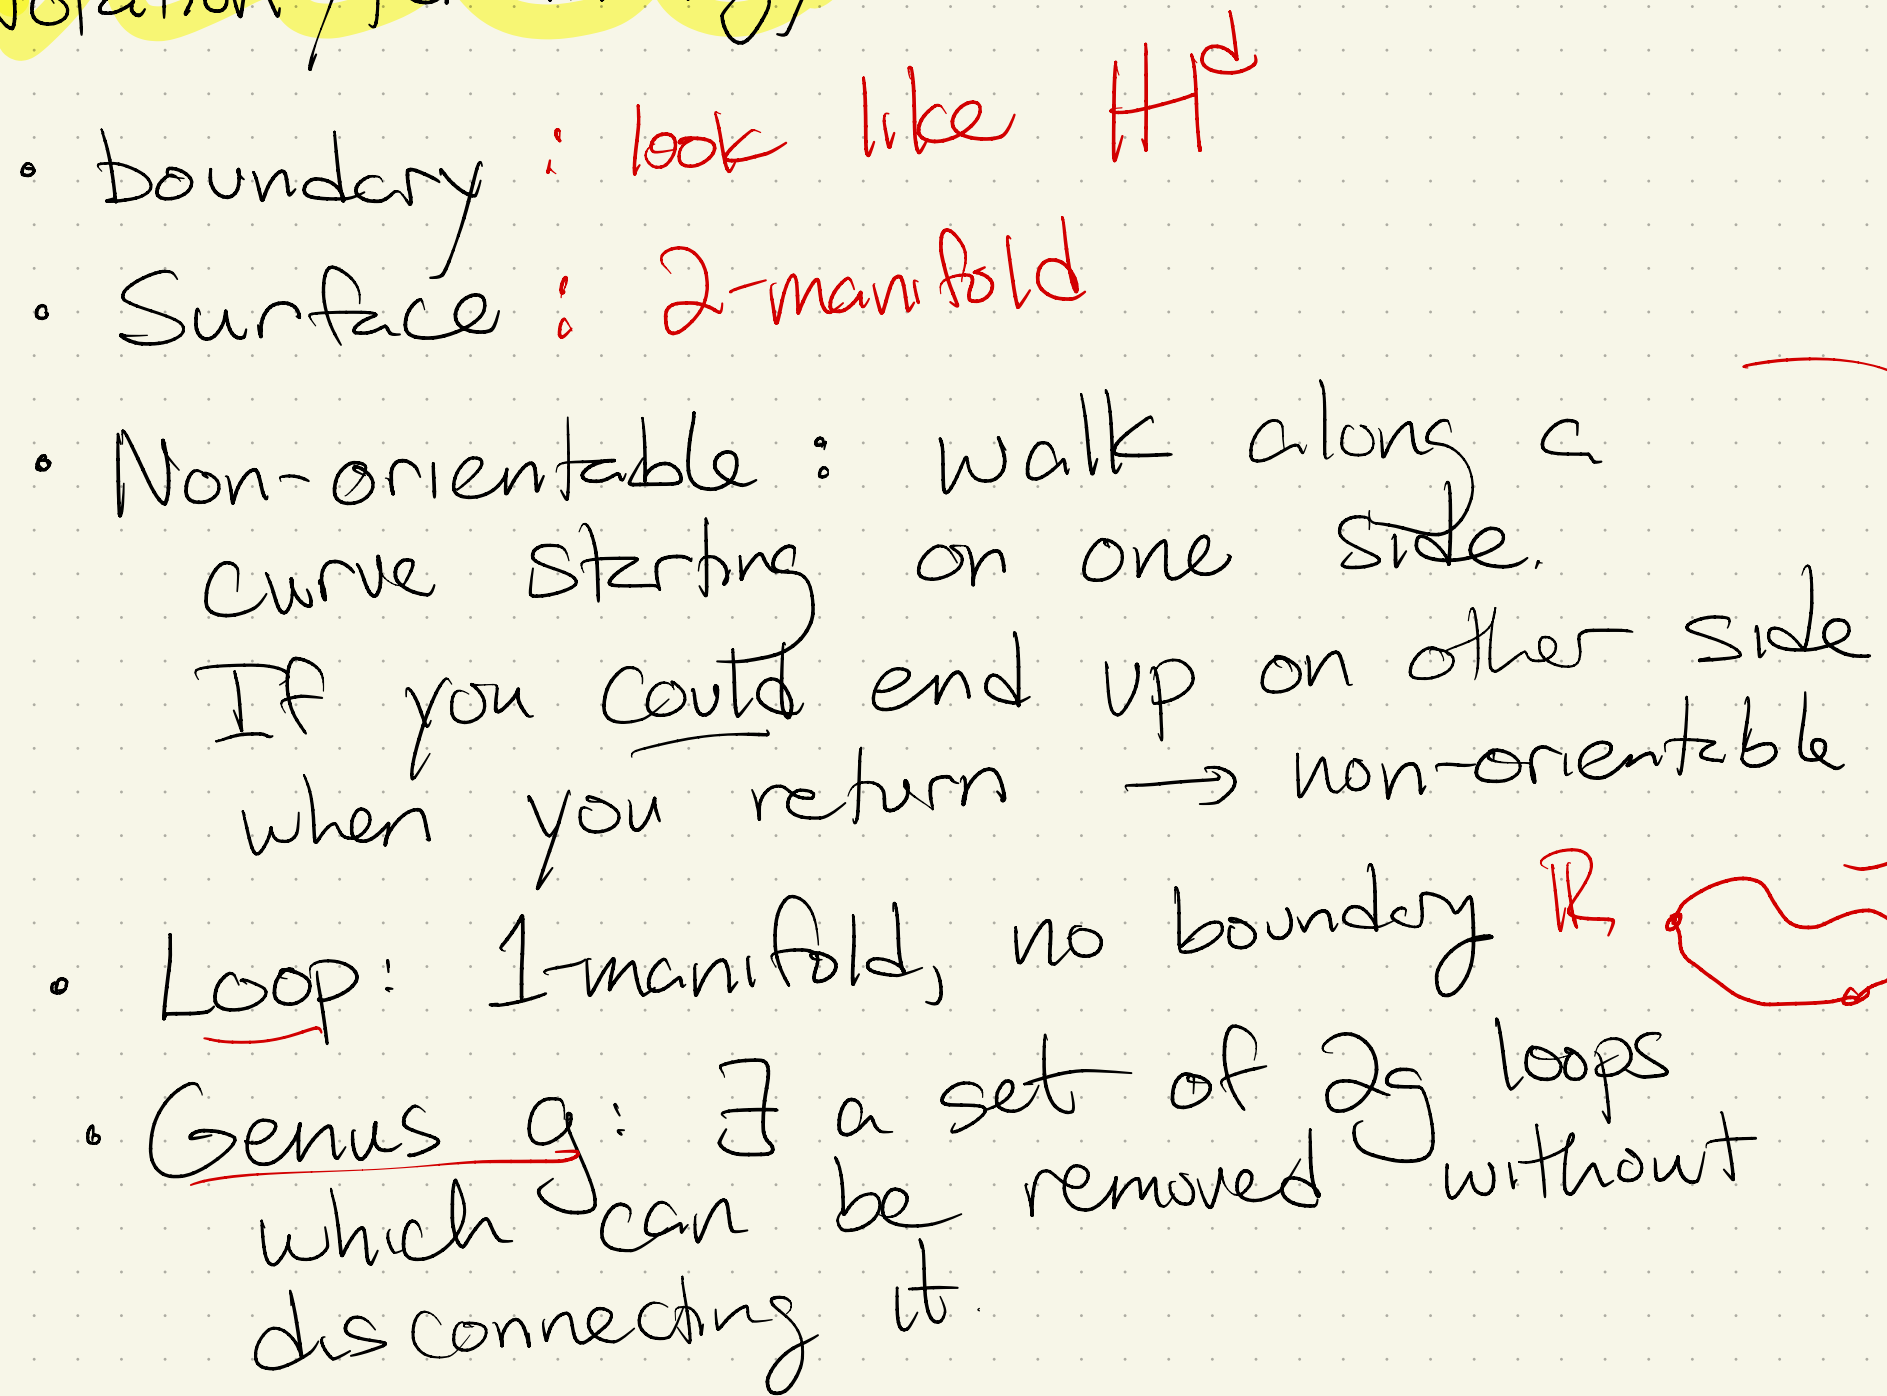 • boundary : look like ℍᵈ
• Surface : 2-manifold
• Non-orientable : walk along a
curve starting on one side.
If you could end up on other side
when you return → non-orientable
• Loop: 1-manifold, no boundary ℝ
• Genus g: ∃ a set of 2g loops
which can be removed without
disconnecting it.